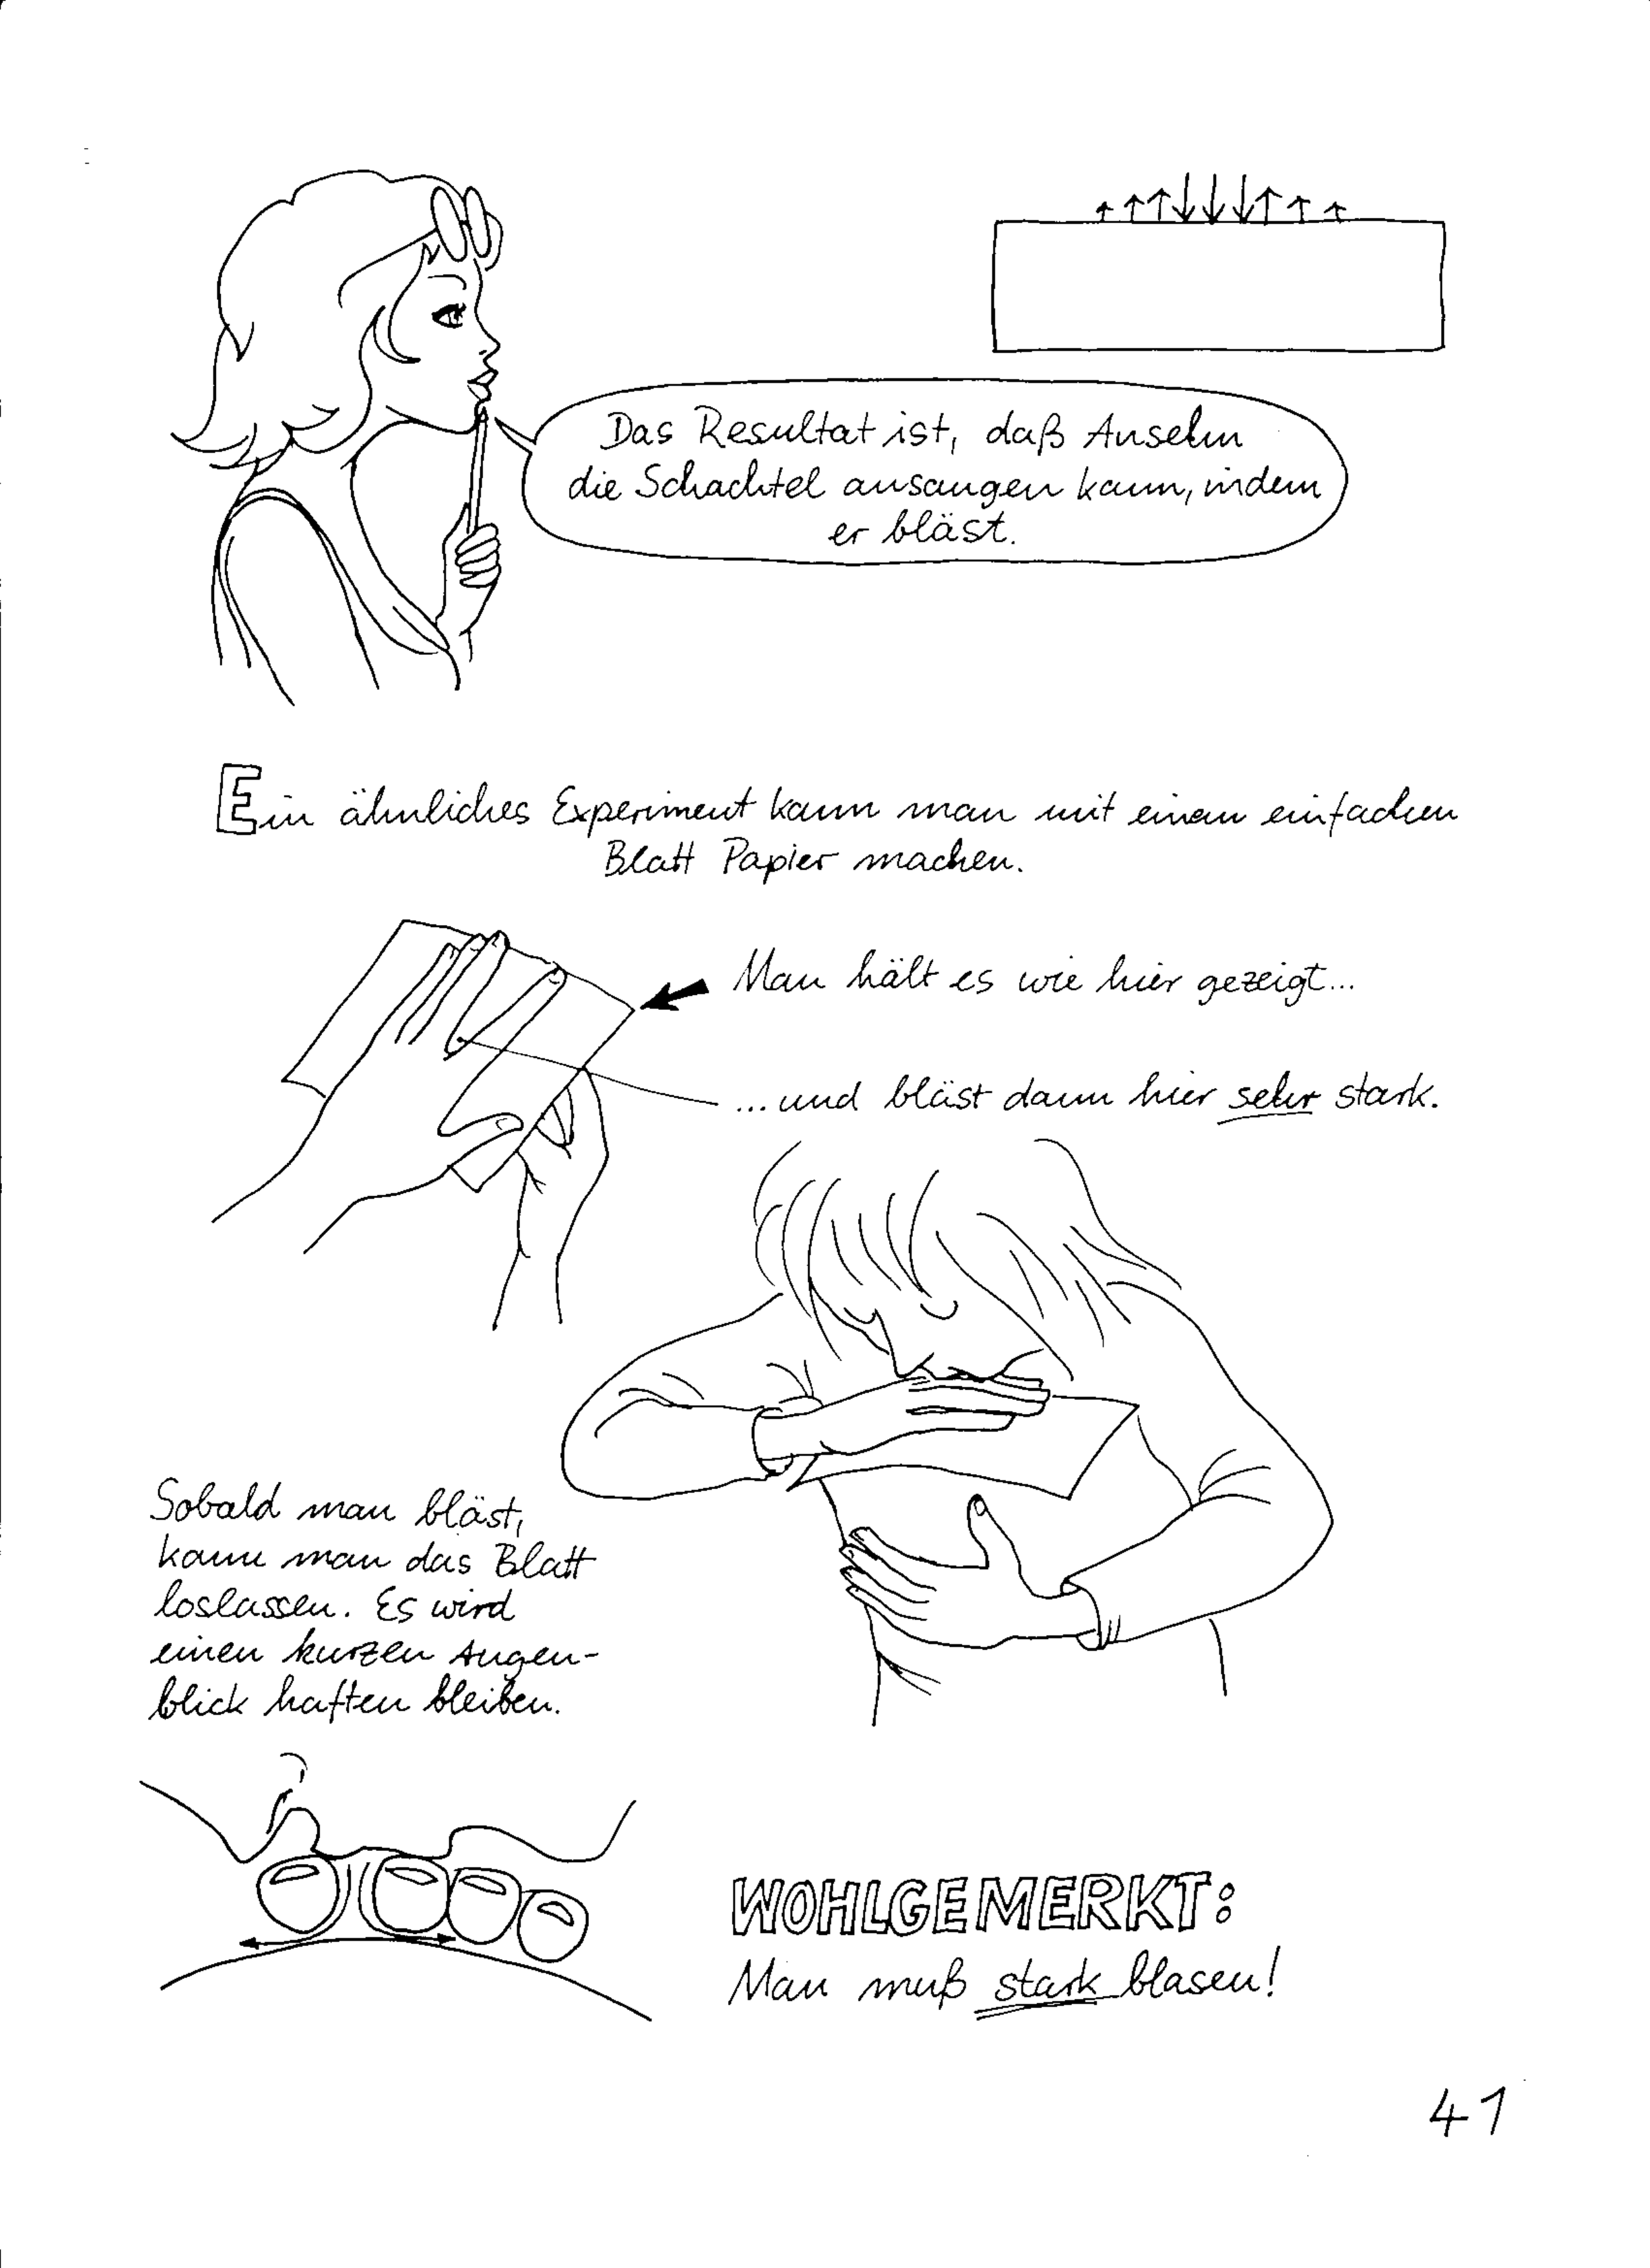 Das Resultat ist, daß Anselm
die Schachtel ansaugen kann, indem
er bläst.
Ein ähnliches Experiment kann man mit einem einfachen
Blatt Papier machen.
Man hält es wie hier gezeigt...
...und bläst dann hier sehr stark.
Sobald man bläst,
kann man das Blatt
loslassen. Es wird
einen kurzen Augen-
blick haften bleiben.
WOHLGEMERKT:
Man muß stark blasen!
41